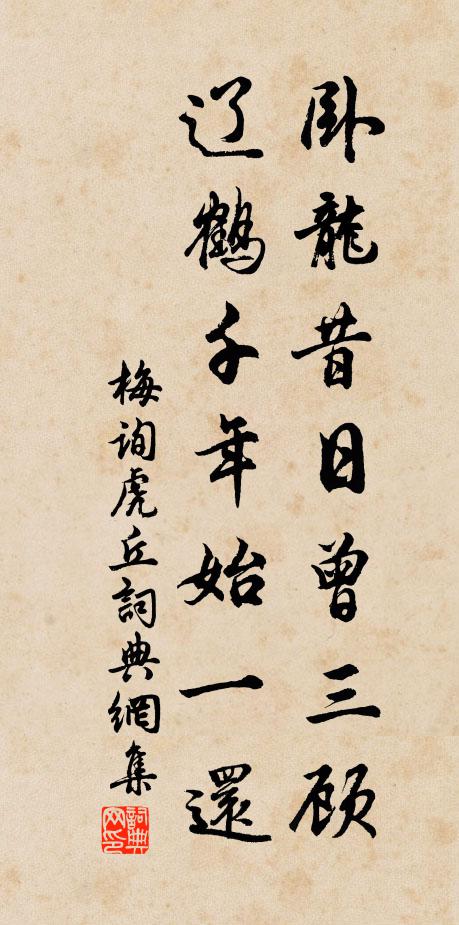 卧龍昔日曾三顾
辽鶴千年始一還
梅询虎丘詞典網集
詞典网印